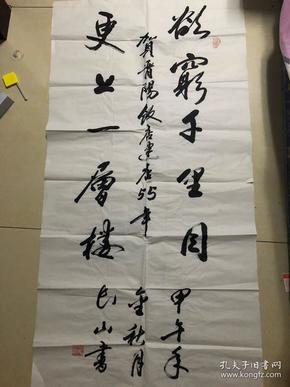 欲窮千里目
更上一層樓
賀晋陽飯店建店55年
甲午年
金秋月
山書
孔夫子旧书网